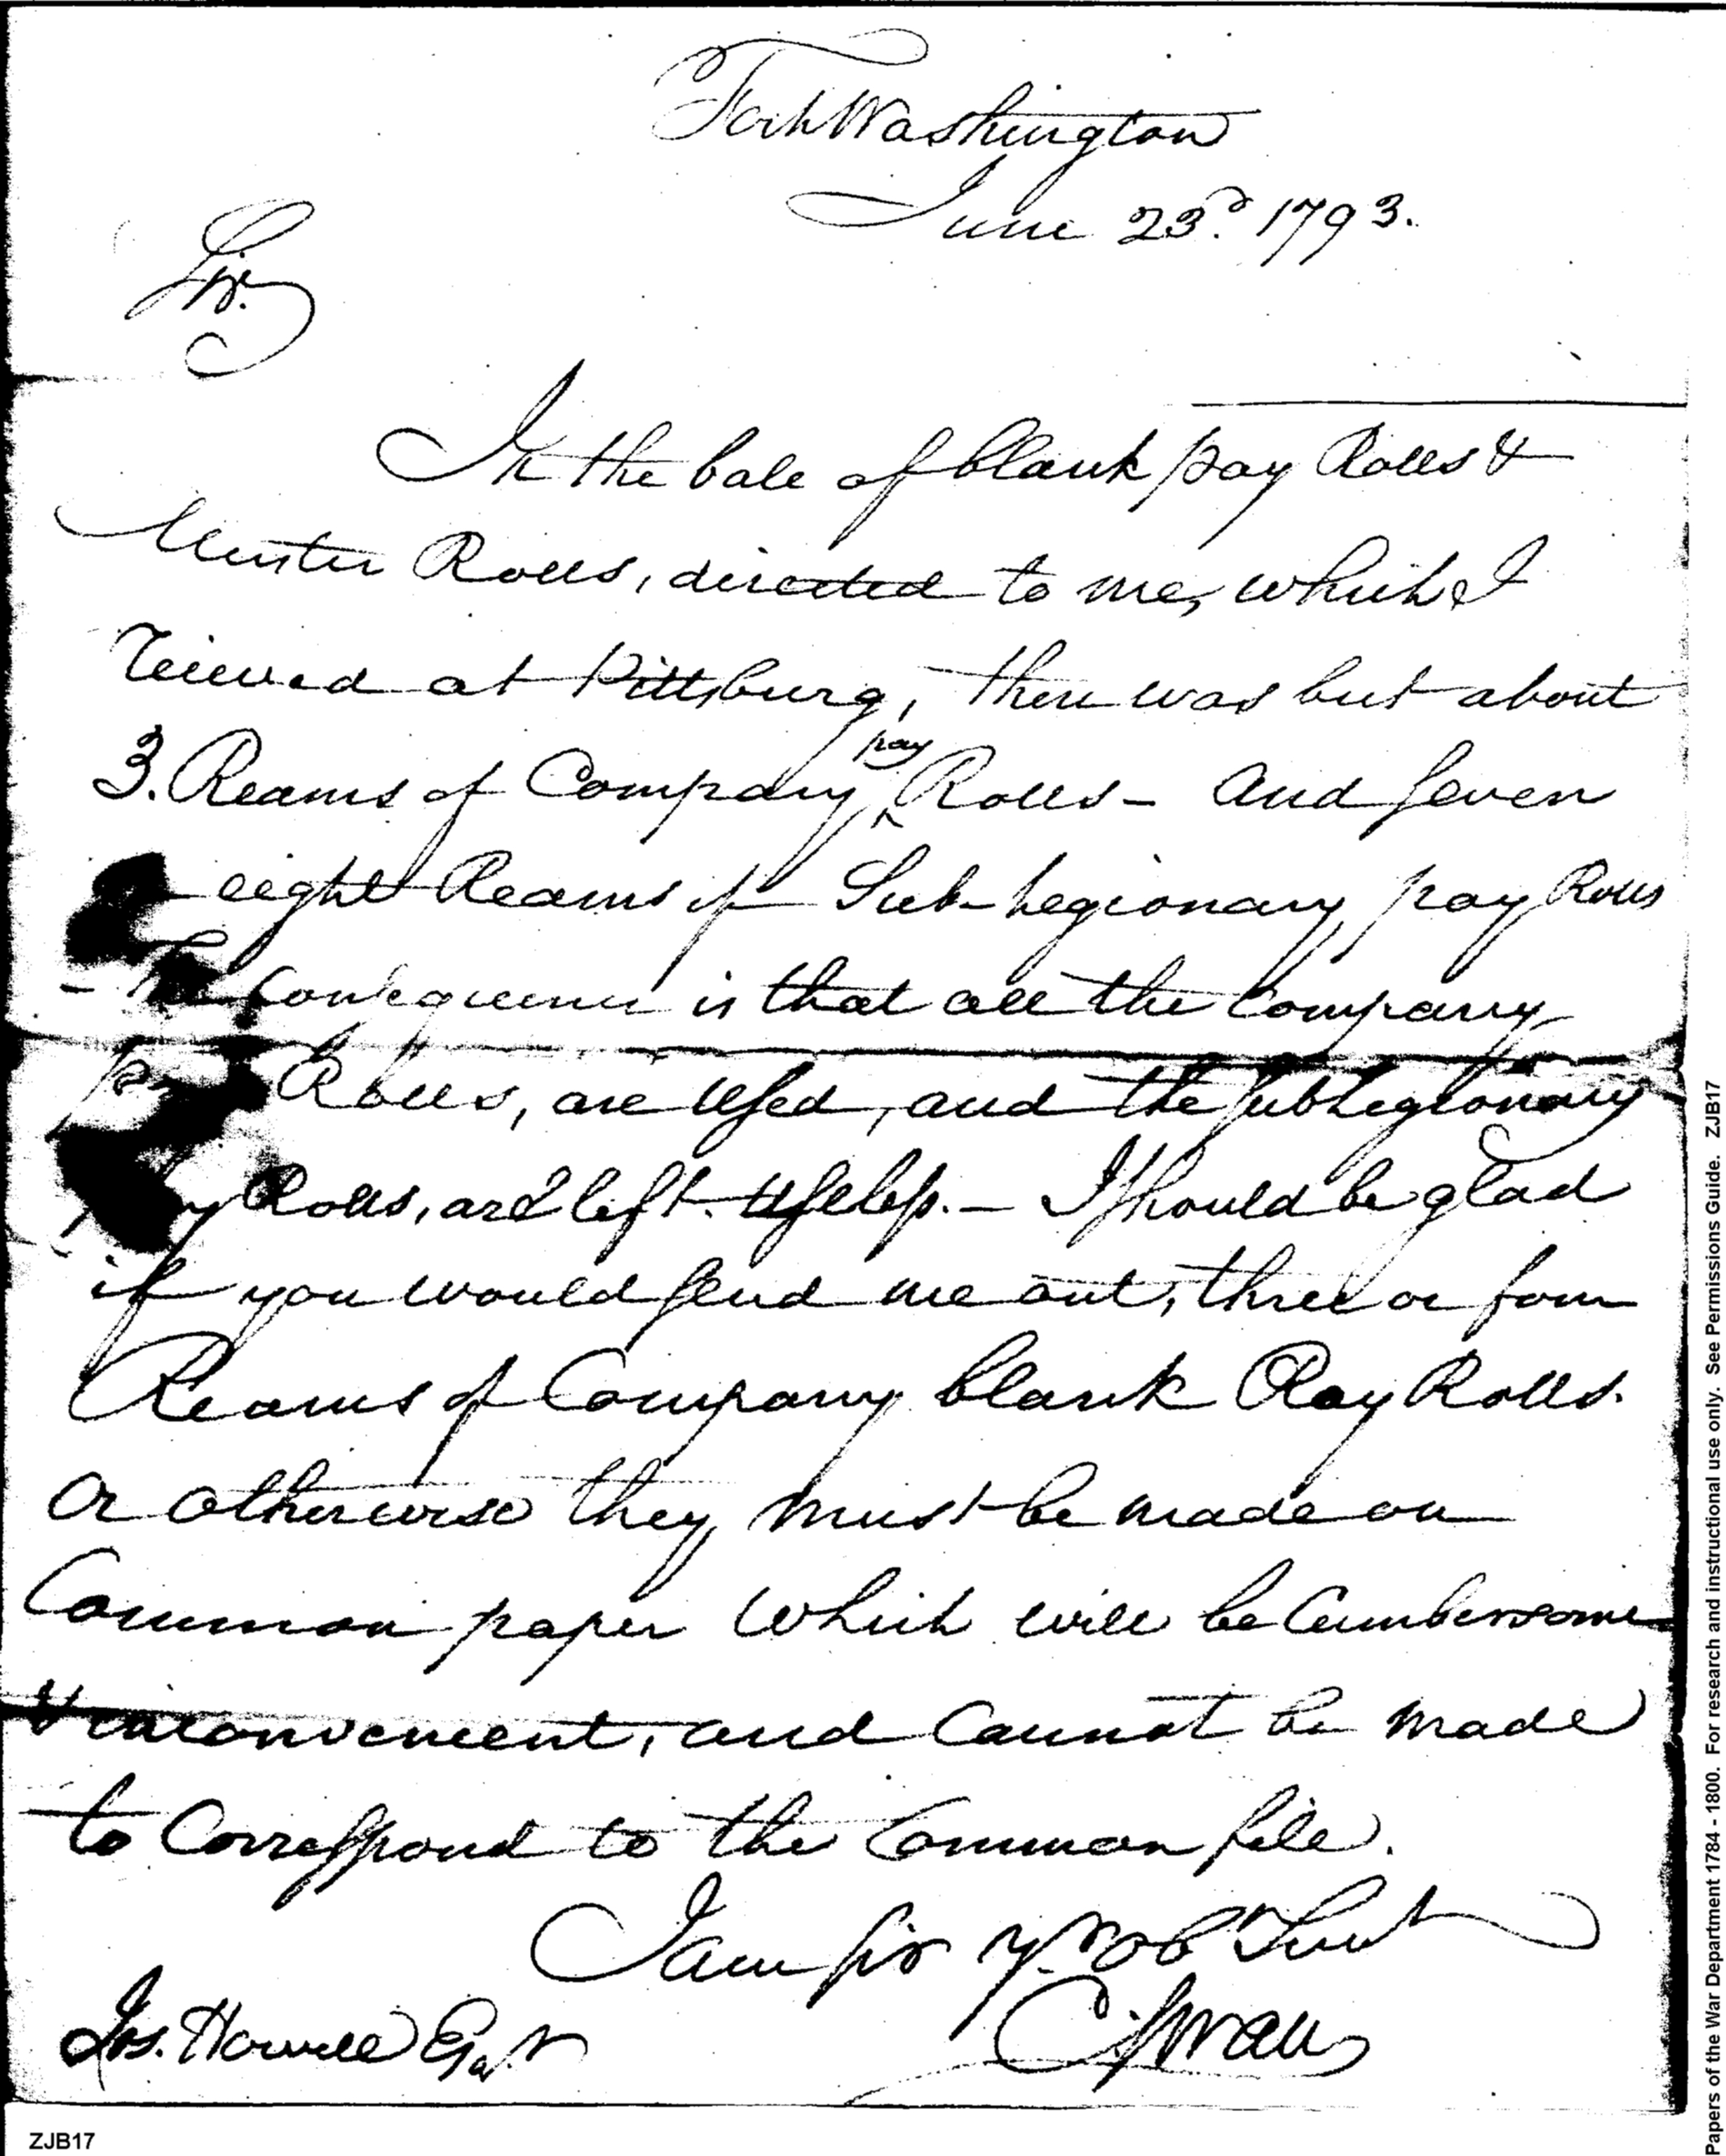 Fort Washington
June 23d. 1793.
Sir.
In the bale of blank pay Rolls &
Muster Rolls, directed to me, which I
received at Pittsburg, there was but about
pay
3. Reams of Company Rolls - and seven
eight Reams of Sub-Legionary pay Rolls
- The Consequence is that all the Company
pay Rolls, are Used, and the subLegionary
Rolls, are left Useless. - I should be glad
if you would send me out, three or four
Reams of Company blank Pay Rolls.
or otherwise they must be made on
Common paper which will be Cumbersome
& inconvenient, and Cannot be made
to Correspond to the Common file.
I am sir yr. ob Servt
C: Swan
Jos. Howell Esqr
ZJB17
Papers of the War Department 1784 - 1800. For research and instructional use only. See Permissions Guide. ZJB17